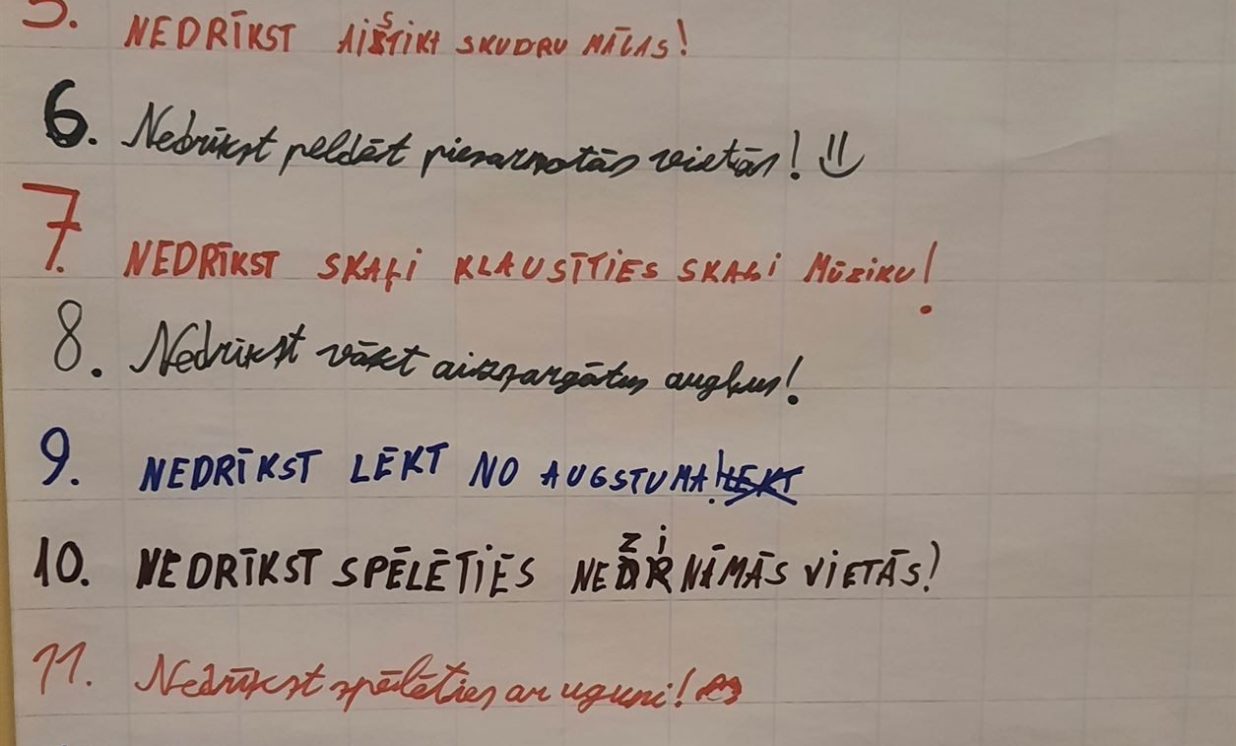 5. NEDRĪKST AISTIKT SKUDRU MĀJAS!
6. Nedrīkst peldēt piesarņotās vietās!
7. NEDRĪKST SKAĻI KLAUSĪTIES SKAĻI MŪZIKU!
8. Nedrīkst vākt aizsargātus augļus!
9. NEDRĪKST LĒKT NO AUGSTUMA! LEKT
10. NEDRĪKST SPĒLĒTIES NEZINĀMĀS VIETĀS!
11. Nedrīkst spēlēties ar uguni!